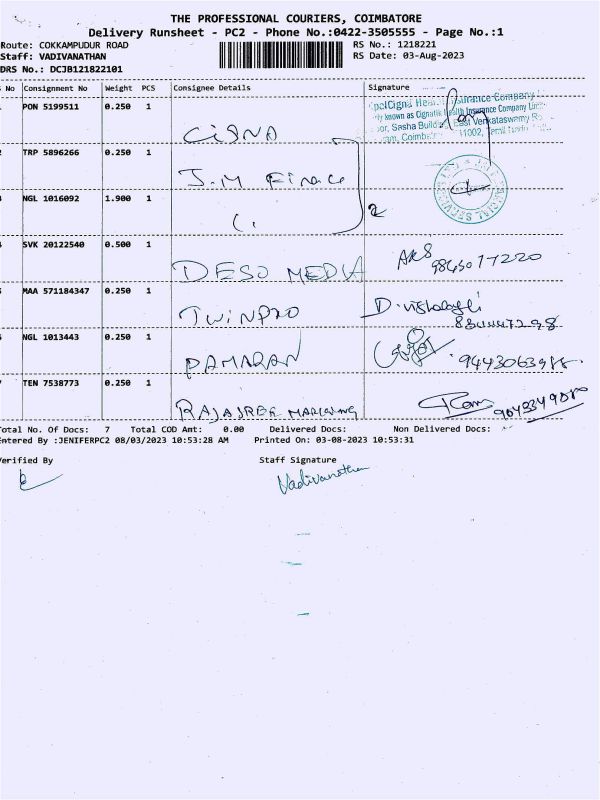 THE PROFESSIONAL COURIERS, COIMBATORE
Delivery Runsheet - PC2 - Phone No.:0422-3505555 - Page No.:1
Route: COKKAMPUDUR ROAD RS No.: 1218221
Staff: VADIVANATHAN RS Date: 03-Aug-2023
DRS No.: DCJB121822101
No Consignment No Weight PCS Consignee Details Signature
PON 5199511 0.250 1 CIGNA
Insurance Company
known as Cignattk Health Insurance Company
Sasha Building, East Venkataswamy
TRP 5896266 0.250 1 J.M Finance
NGL 1016092 1.900 1 2
SVK 20122540 0.500 1 DESO MEDIA
MAA 571184347 0.250 1 TWINPRO D.
NGL 1013443 0.250 1
TEN 7538773 0.250 1 RAJASREE Ram
Total No. Of Docs: 7 Total COD Amt: 0.00 Delivered Docs: Non Delivered Docs:
Entered By :JENIFERPC2 08/03/2023 10:53:28 AM Printed On: 03-08-2023 10:53:31
Verified By Staff Signature
Vadivanathan